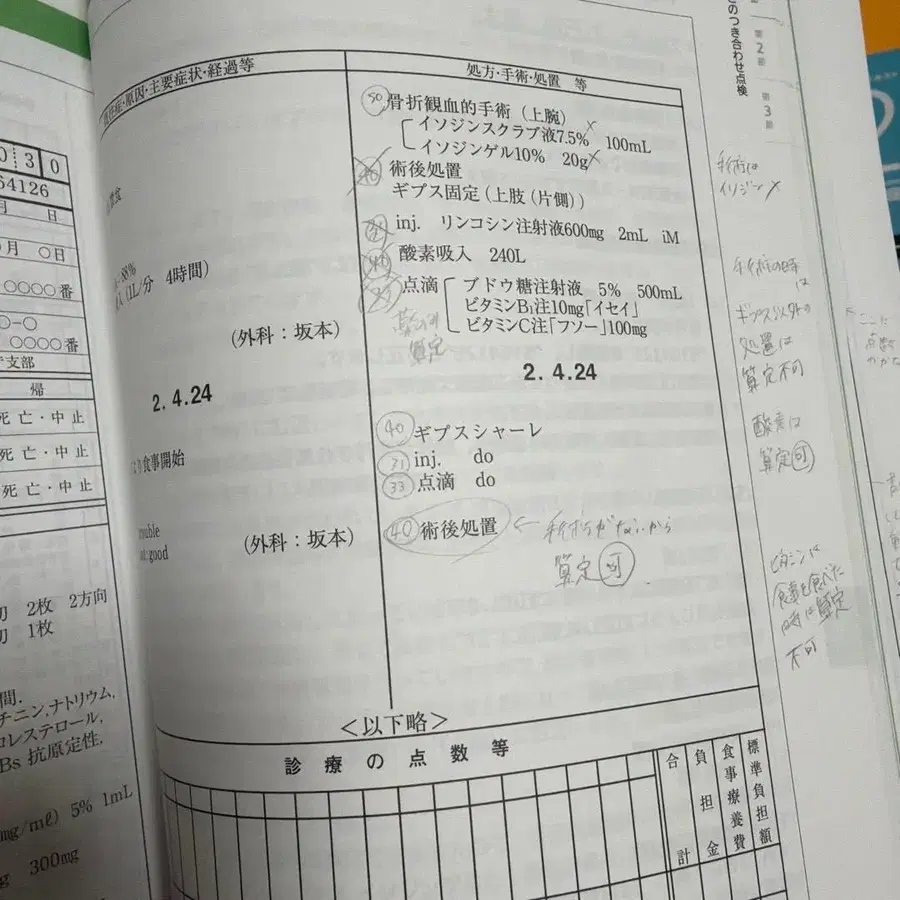 主要症状・経過等
処方・手術・処置 等
50 骨折観血的手術（上腕）
イソジンスクラブ液7.5% 100mL
イソジンゲル10% 20g
術後処置
ギプス固定（上肢（片側））
inj. リンコシン注射液600mg 2mL iM
酸素吸入 240L
点滴 ブドウ糖注射液 5% 500mL
ビタミンB₁注10mg「イセイ」
ビタミンC注「フソー」100mg
算定
88%
(1L/分 4時間)
（外科：坂本）
2.4.24
2.4.24
40 ギプスシャーレ
31 inj. do
33 点滴 do
40 術後処置 ← 手術がないから
算定可
食事開始
good
（外科：坂本）
＜以下略＞
診療の点数等
合計
負担金
食事療養費
標準負担額
のつき合わせ点検
第2節
第3節
手術は
イソジン×
手術の時
は
ギプス以外の
処置は
算定不可
酸素は
算定可
ビタミンは
食事を食べた
時は算定
不可
0 3 0
54126
月 日
月 ○日
○○○○番
○−○
○○○○番
支部
帰
死亡・中止
死亡・中止
死亡・中止
2枚 2方向
1枚
間.
チニン,ナトリウム,
コレステロール,
Bs 抗原定性,
mg/mℓ) 5% 1mL
300mg